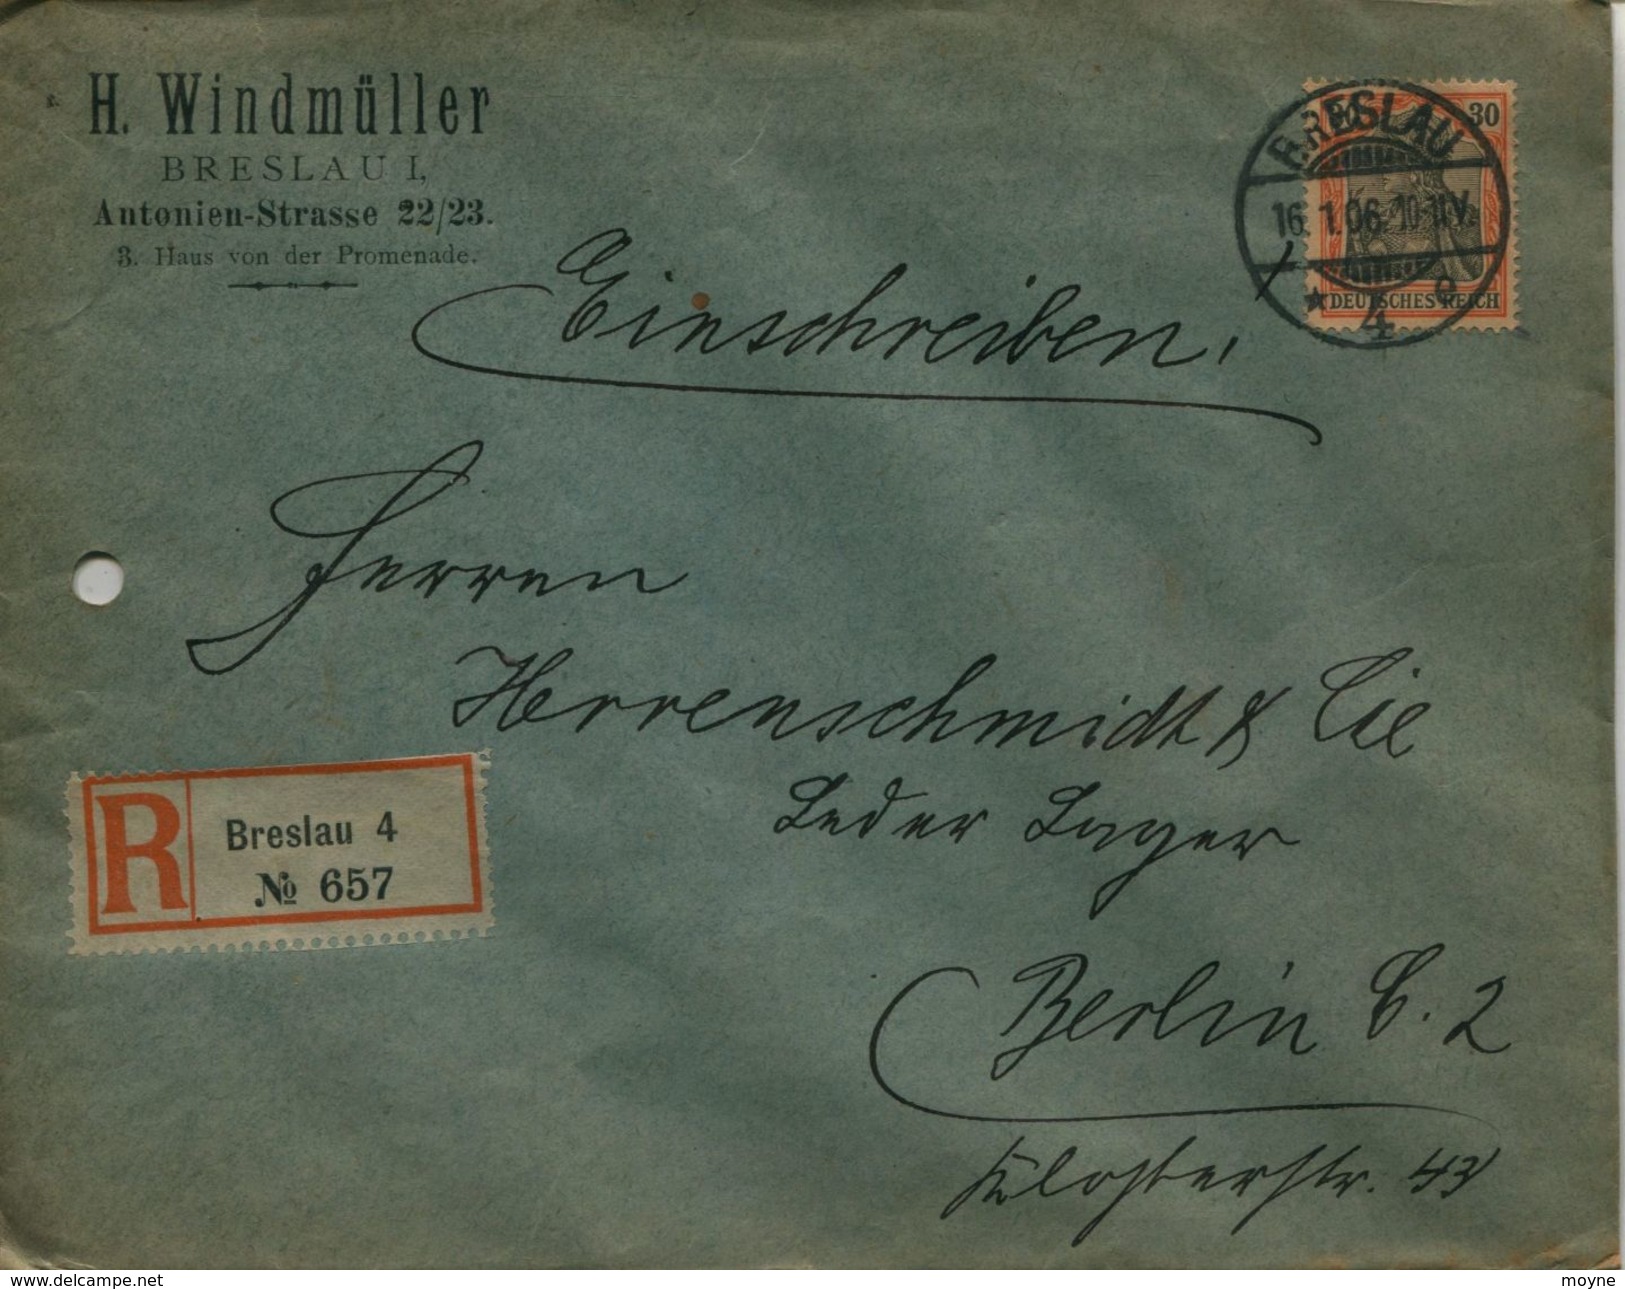 H. Windmüller
BRESLAU I,
Antonien-Strasse 22/23.
3. Haus von der Promenade.
30 30
BRESLAU
16.1.06. 10-11V.
* 4 e
DEUTSCHES REICH
Einschreiben.
Herren
Herrenschmidt & Cie
Leder Lager
R Breslau 4
№ 657
Berlin C. 2
Klosterstr. 43
www.delcampe.net
moyne